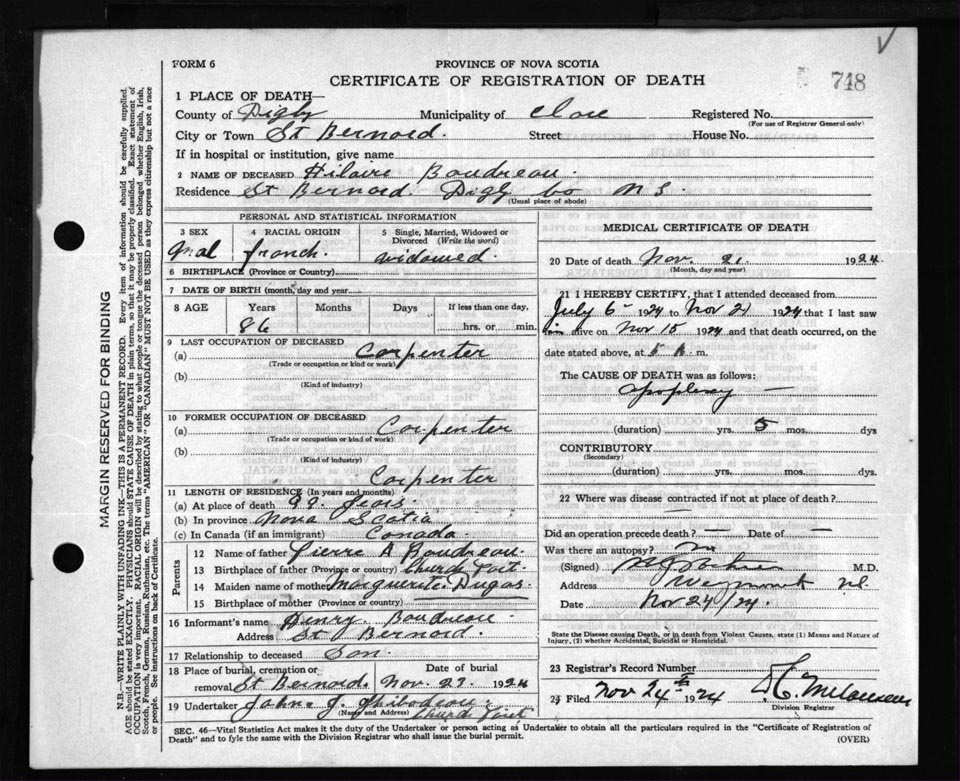 FORM 6
PROVINCE OF NOVA SCOTIA
CERTIFICATE OF REGISTRATION OF DEATH
748
1 PLACE OF DEATH—
County of Digby Municipality of Clare Registered No.
(For use of Registrar General only)
City or Town St Bernard. Street House No.
If in hospital or institution, give name
2 NAME OF DECEASED Hilaire Boudreau.
Residence St Bernard Digby Co N S.
(Usual place of abode)
PERSONAL AND STATISTICAL INFORMATION
3 SEX 4 RACIAL ORIGIN 5 Single, Married, Widowed or Divorced (Write the word)
Mal french. widowed.
6 BIRTHPLACE (Province or Country)
7 DATE OF BIRTH (month, day and year)
8 AGE Years Months Days If less than one day.
86 hrs. or min.
9 LAST OCCUPATION OF DECEASED
(a) Carpenter
(Trade or occupation or kind or work)
(b)
(Kind of industry)
10 FORMER OCCUPATION OF DECEASED
(a) Carpenter
(Trade or occupation or kind of work)
(b)
(Kind of industry)
Carpenter
11 LENGTH OF RESIDENCE (In years and months)
(a) At place of death
(b) In province Nova Scotia
(c) In Canada (if an immigrant) Canada.
Parents
12 Name of father Pierre A Boudreau.
13 Birthplace of father (Province or country) Church Point.
14 Maiden name of mother Marguerite Dugas.
15 Birthplace of mother (Province or country)
16 Informant's name Henry Boudreau
Address St Bernard.
17 Relationship to deceased Son.
18 Place of burial, cremation or removal St Bernard. Date of burial Nov. 23. 1924
19 Undertaker John J. Thibodeau
(Name and Address) Church Point
MEDICAL CERTIFICATE OF DEATH
20 Date of death Nov. 21. 1924
(Month, day and year)
21 I HEREBY CERTIFY, that I attended deceased from
July 6 1924 to Nov 21 1924 that I last saw
alive on Nov 15 1924 and that death occurred, on the
date stated above, at 5 A m.
The CAUSE OF DEATH was as follows:
Apoplexy —
(duration) yrs. 5 mos. dys
CONTRIBUTORY
(Secondary)
(duration) yrs. — mos. dys.
22 Where was disease contracted if not at place of death?
Did an operation precede death? — Date of —
Was there an autopsy? no
(Signed) M.D.
Address Weymouth N.S.
Date Nov 24/24.
State the Disease causing Death, or in death from Violent Causes, state (1) Means and Nature of Injury, (2) whether Accidental, Suicidal or Homicidal.
23 Registrar's Record Number
24 Filed Nov 24th 1924
Division Registrar
SEC. 46—Vital Statistics Act makes it the duty of the Undertaker or person acting as Undertaker to obtain all the particulars required in the "Certificate of Registration of
Death" and to fyle the same with the Division Registrar who shall issue the burial permit. (OVER)
MARGIN RESERVED FOR BINDING
N.B.—WRITE PLAINLY WITH UNFADING INK—THIS IS A PERMANENT RECORD. Every item of information should be carefully supplied.
AGE should be stated EXACTLY. PHYSICIANS should STATE CAUSE OF DEATH in plain terms, so that it may be properly classified. Exact statement of
OCCUPATION is very important. RACIAL ORIGIN will be described by stating to what people or tongue the deceased person belonged whether English, Irish,
Scotch, French, German, Russian, Ruthenian, etc. The terms "AMERICAN" OR "CANADIAN" MUST NOT BE USED as they express citizenship but not a race
or people. See instructions on back of Certificate.